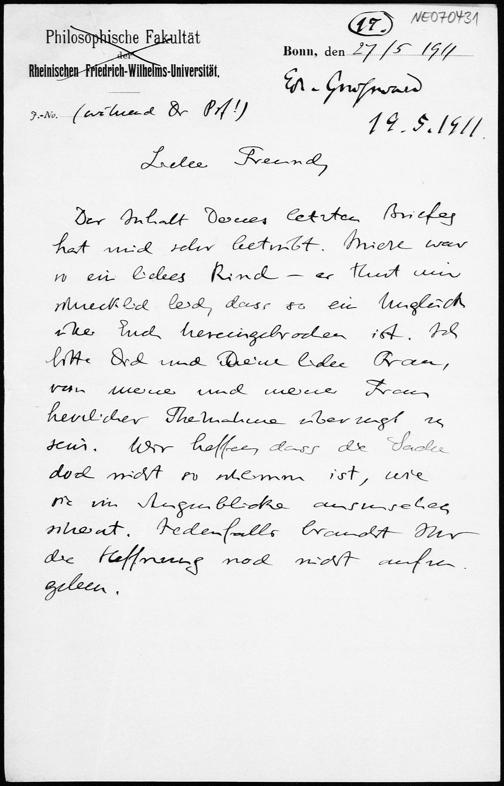 17.
NE070431
Philosophische Fakultät
der
Rheinischen Friedrich-Wilhelms-Universität.
Bonn, den 27/5 1911
J.-No. (während Dr Prf!)
19.5.1911.
Lieber Freund,
Der Inhalt Deines letzten Briefes
hat mich sehr betrübt. war
so ein liebes Kind – es thut mir
schrecklich leid, dass so ein Unglück
über Euch hereingebrochen ist. Ich
bitte Dich und Deine liebe Frau,
von meiner und meiner Frau
herzlicher Theilnahme überzeugt zu
sein. Wir hoffen, dass die Sache
doch nicht so schlimm ist, wie
sie im Augenblicke auszusehen
scheint. Jedenfalls braucht Ihr
die Hoffnung noch nicht aufzu-
geben.